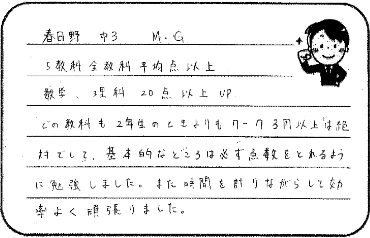 春日野 中3 M・G
5教科全教科平均点以上
数学、理科 20点以上UP
どの教科も2年生のときよりもワーク3周以上は絶
対でして、基本的なところは必ず点数をとれるよう
に勉強しました。また時間を計りながらして効
率よく頑張りました。